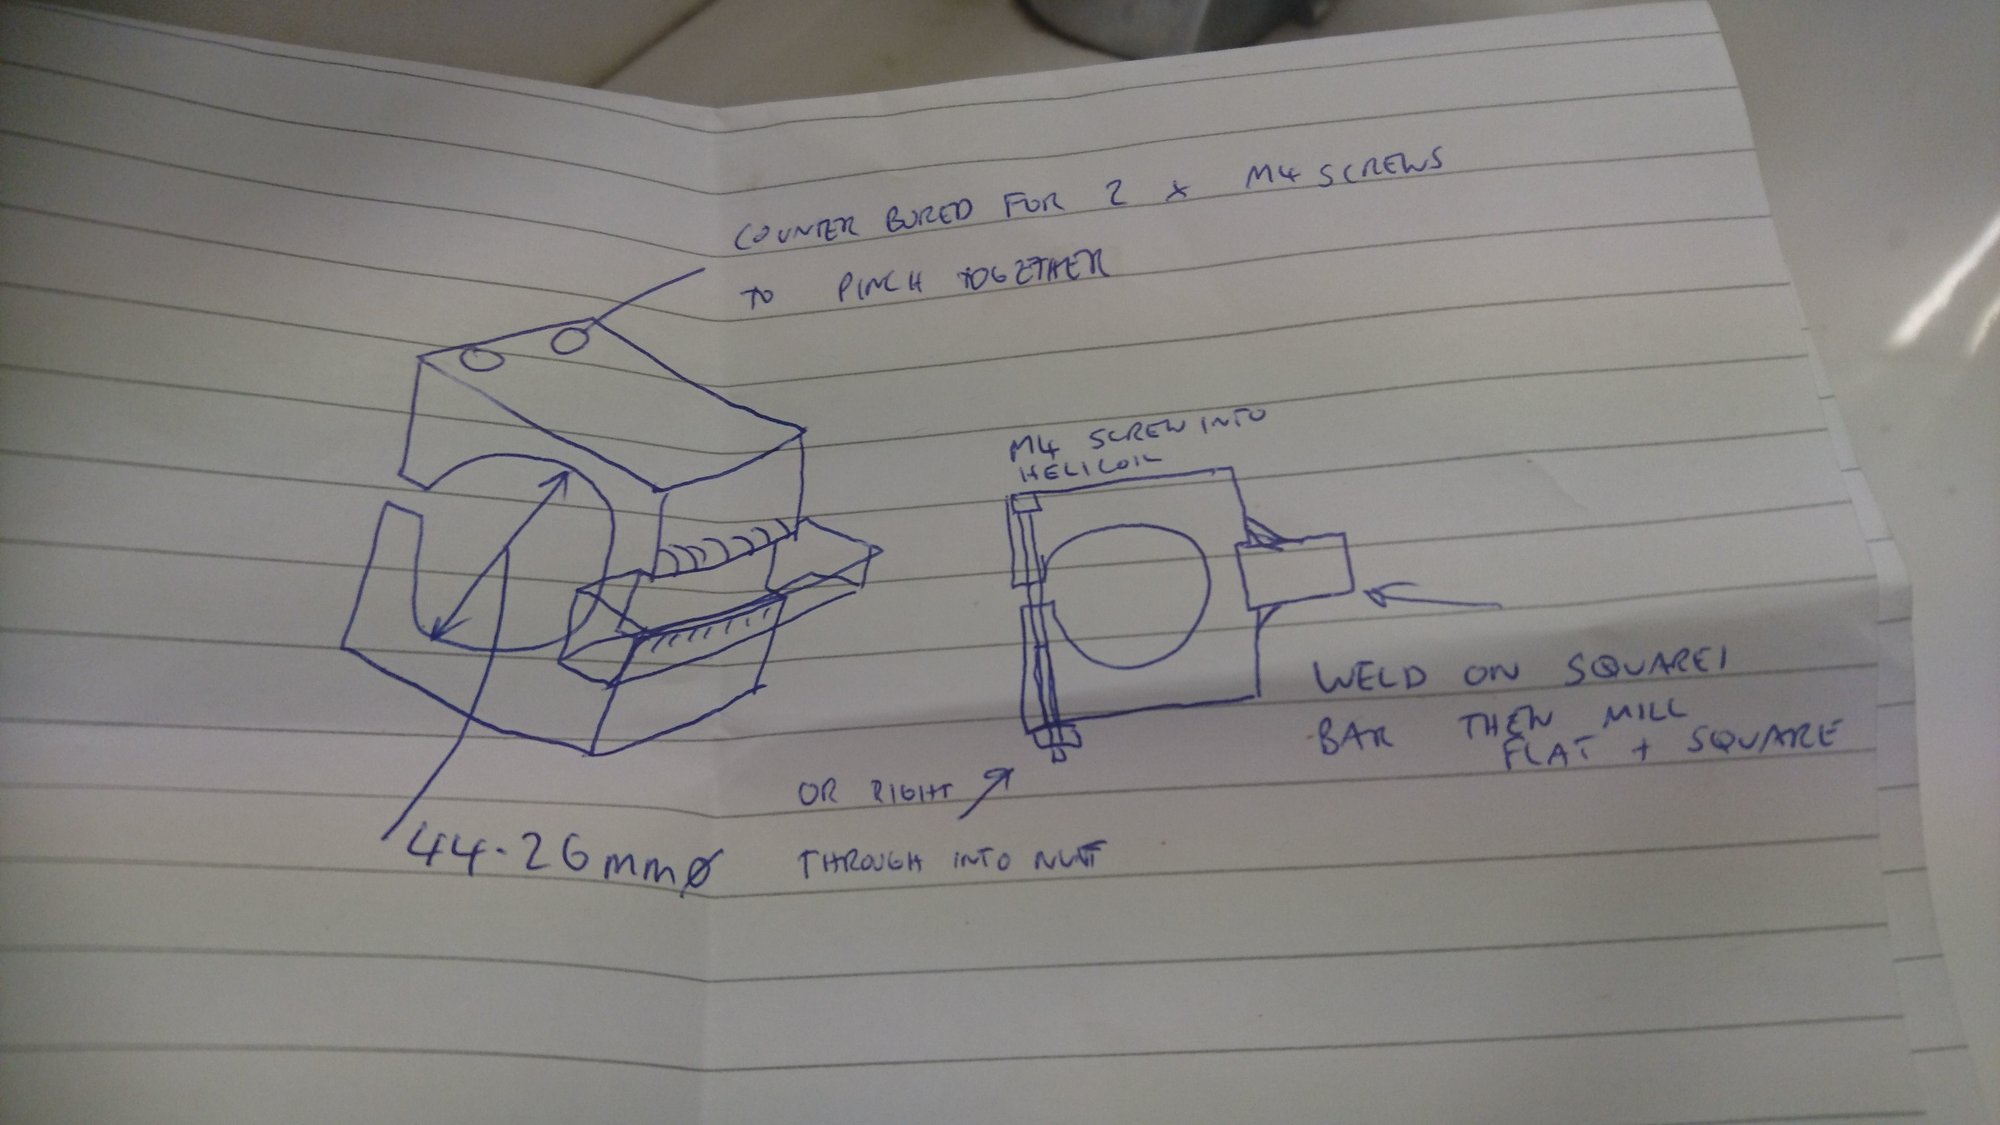 COUNTER BORED FOR 2 x M4 SCREWS
TO PINCH TOGETHER
M4 SCREW INTO
HELICOIL
WELD ON SQUARE
BAR THEN MILL
FLAT + SQUARE
OR RIGHT
THROUGH INTO NUT
44.26mmø